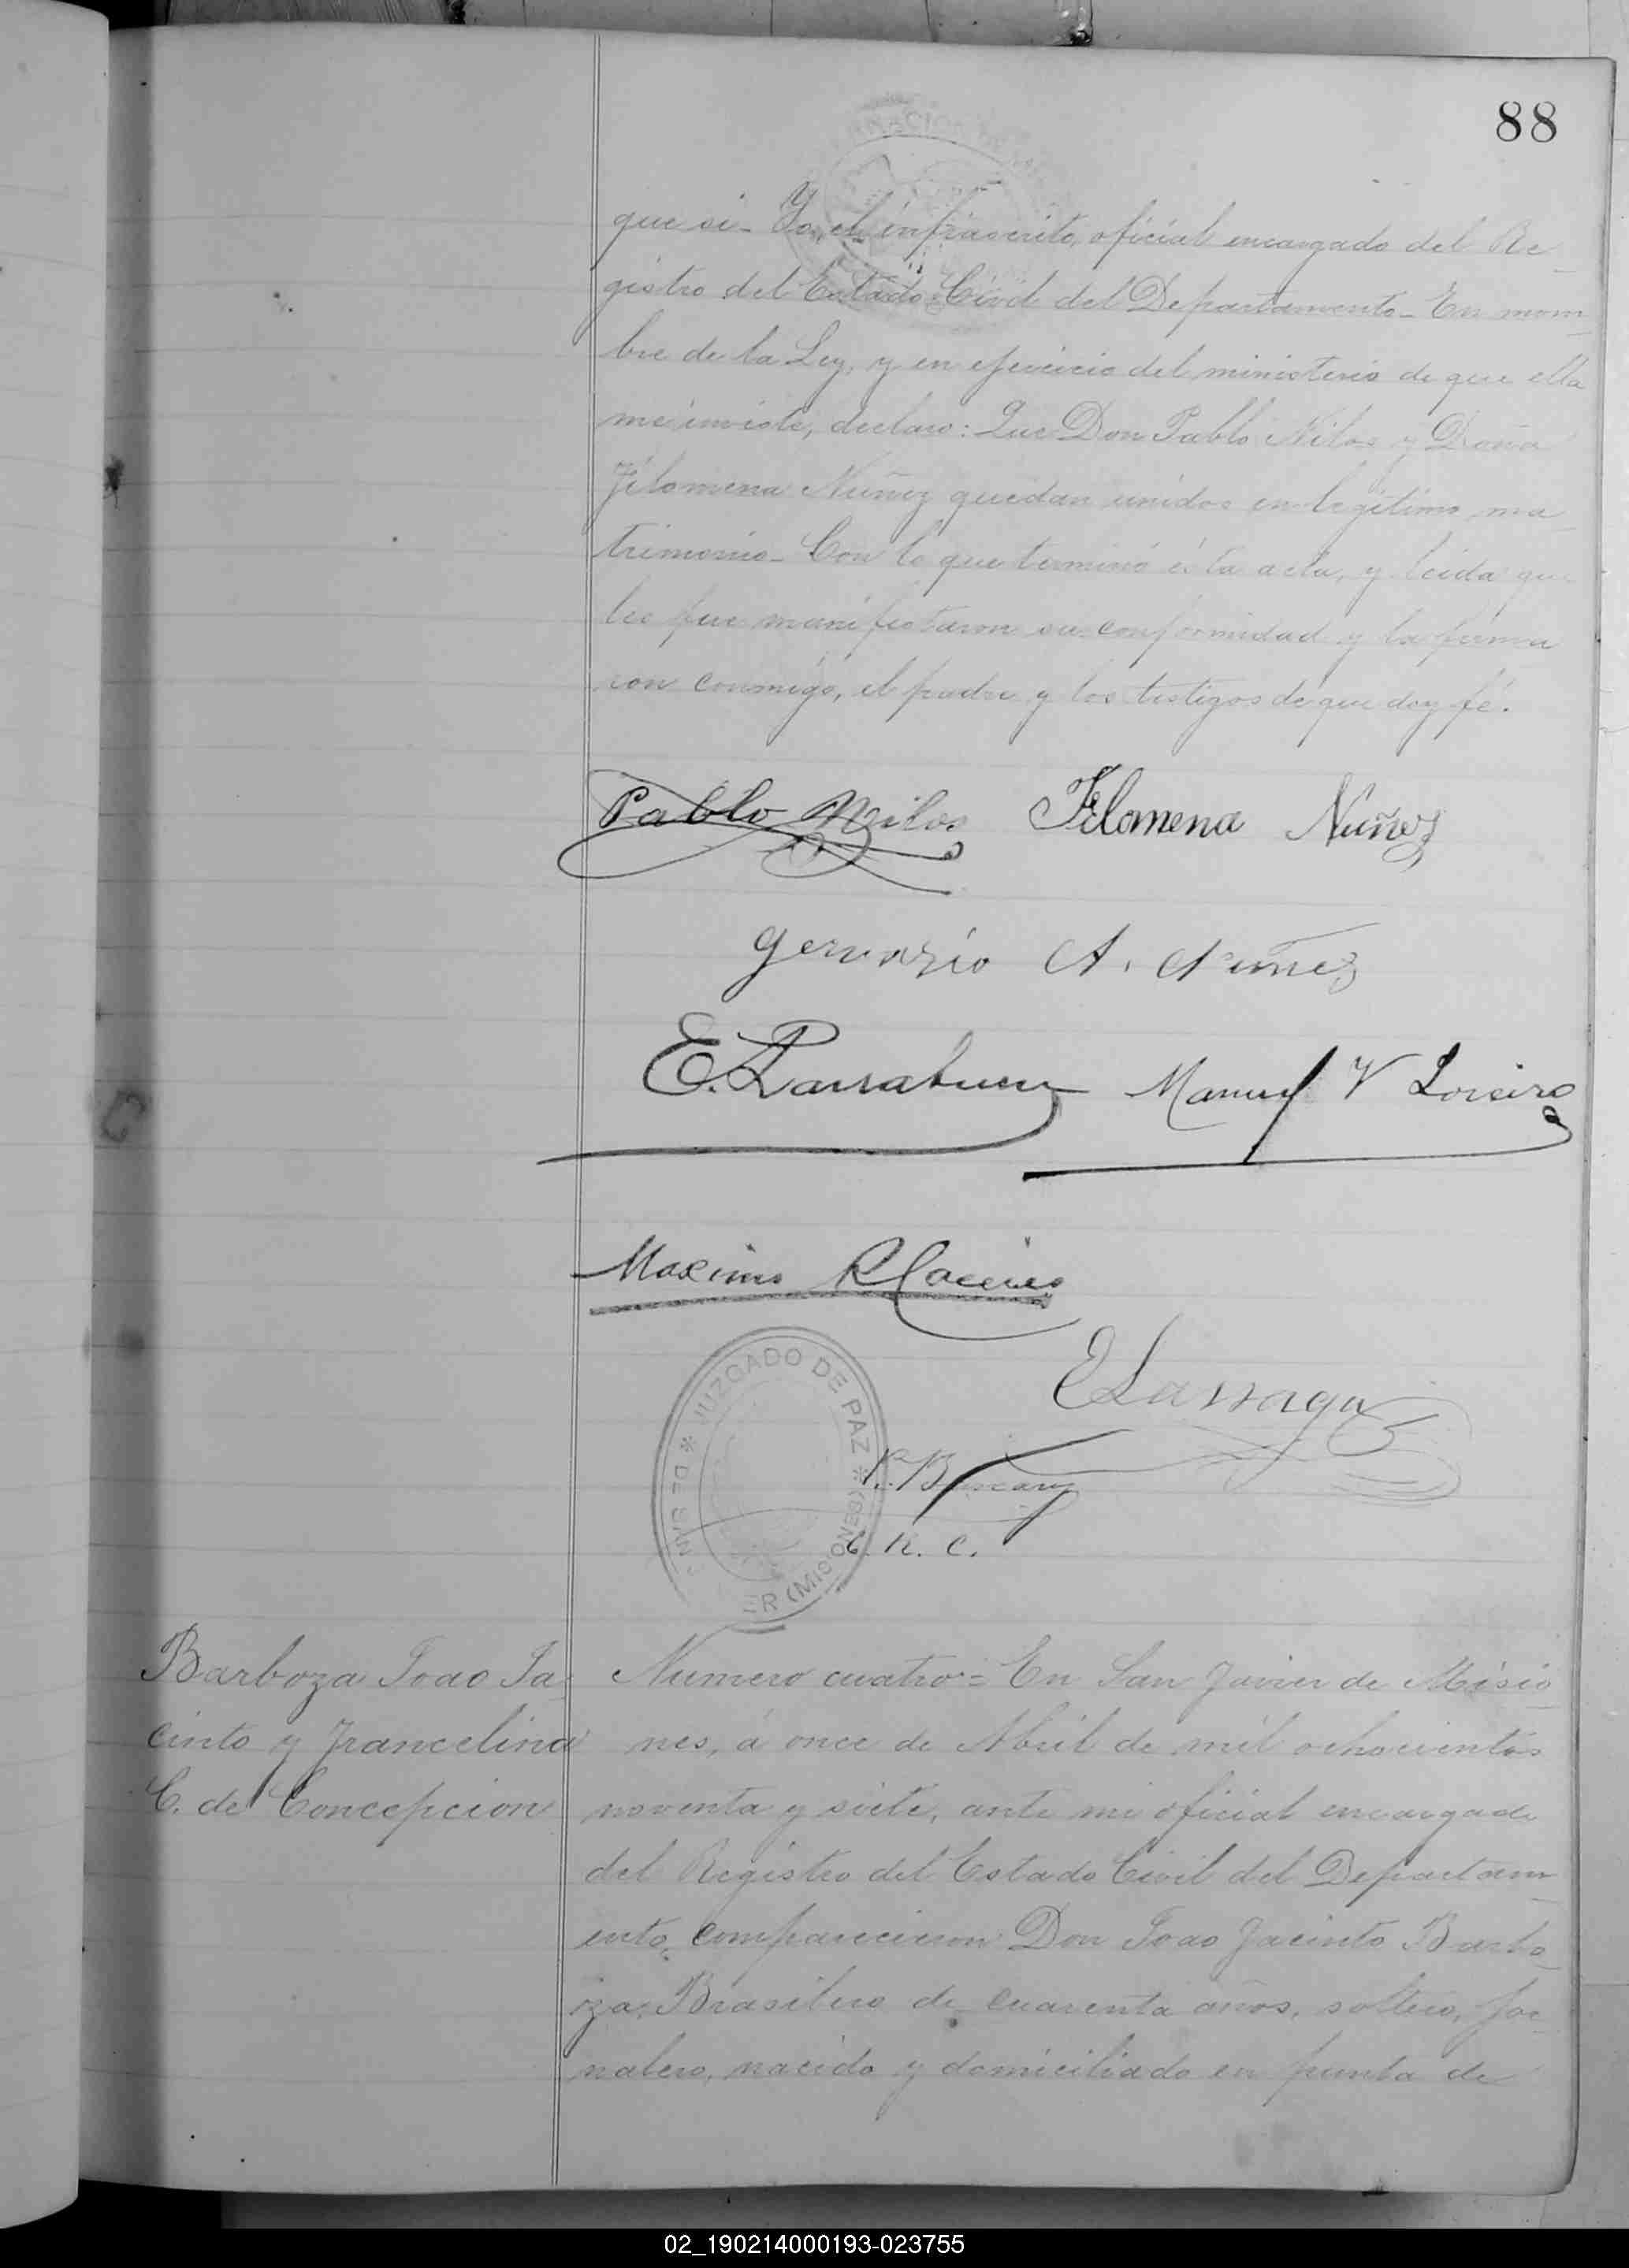 88
que si_ Yo, el infrascrito, oficial encargado del Re_
gistro del Estado Civil del Departamento_ En nom_
bre de la Ley, y en ejercicio del ministerio de que ella
me inviste, declaro: Que Don Pablo Nilos y Doña
Filomena Nuñez quedan unidos en legitimo ma_
trimonio_ Con lo que terminó ésta acta, y leida que
les fue manifestaron su conformidad y la firma
ron conmigo, el padre y los testigos de que doy fé.
Pablo Nilos Filomena Nuñez
Gervazio A. Nuñez
E. Manuel V Loreiro
Maximo R
JUZGADO DE PAZ
E Larraga
E. R. C.
Barboza Joao Ja
cinto y Francelina
C. de Concepcion
Numero cuatro = En San Javier de Misio_
nes, á once de Abril de mil ochocientos
noventa y siete, ante mi oficial encargado
del Registro del Estado Civil del Departam_
ento, comparecieron Don Joao Jacinto Barbo_
za, Brasilero de cuarenta años, soltero, Jor_
nalero, nacido y domiciliado en punta de
02_190214000193-023755